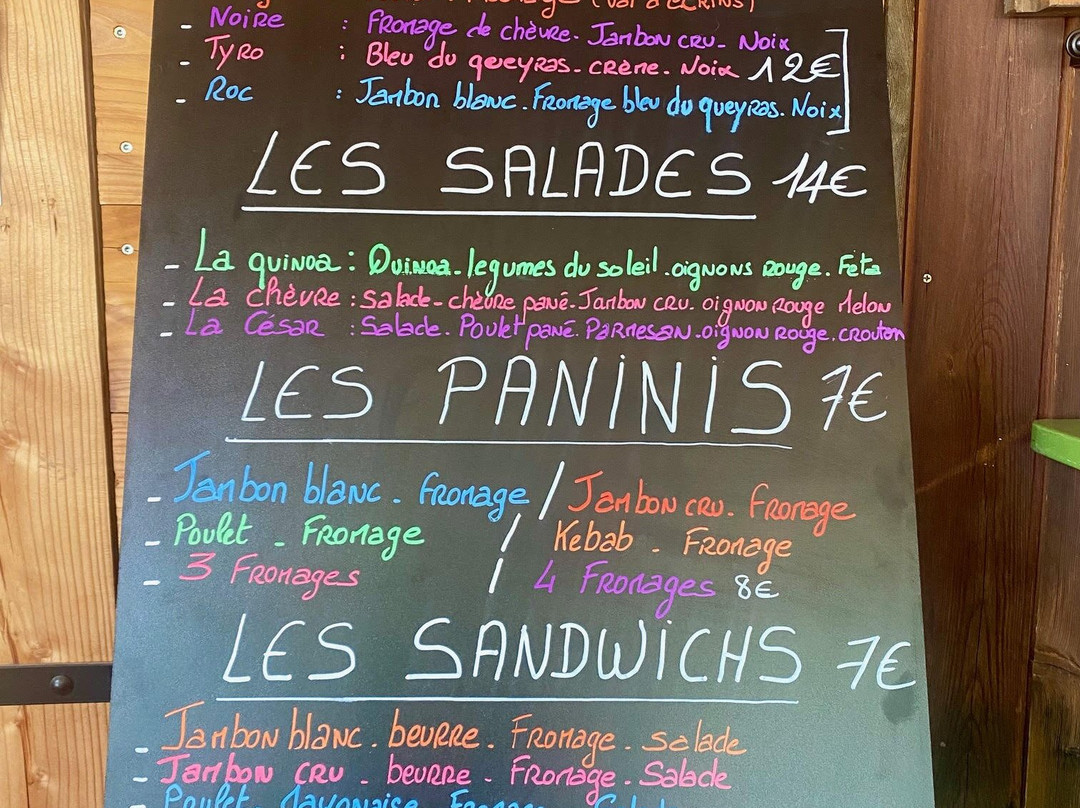 (Val d'ECRINS)
- Noire : Fromage de chèvre. Jambon cru. Noix
- Tyro : Bleu du queyras. crème. Noix 12€
- Roc : Jambon blanc. Fromage bleu du queyras. Noix
LES SALADES 14€
- La quinoa : Quinoa. legumes du soleil. oignons Rouge. Feta
- La chèvre : salade. chèvre pané. Jambon cru. oignon Rouge Melon
- La César : Salade. Poulet pané. Parmesan. oignon Rouge. crouton
LES PANINIS 7€
- Jambon blanc. fromage / Jambon cru. Fromage
- Poulet - Fromage / Kebab. Fromage
- 3 Fromages / 4 Fromages 8€
LES SANDWICHS 7€
- Jambon blanc. beurre. Fromage. salade
- Jambon cru - beurre - Fromage. Salade
Poulet. Mayonaise